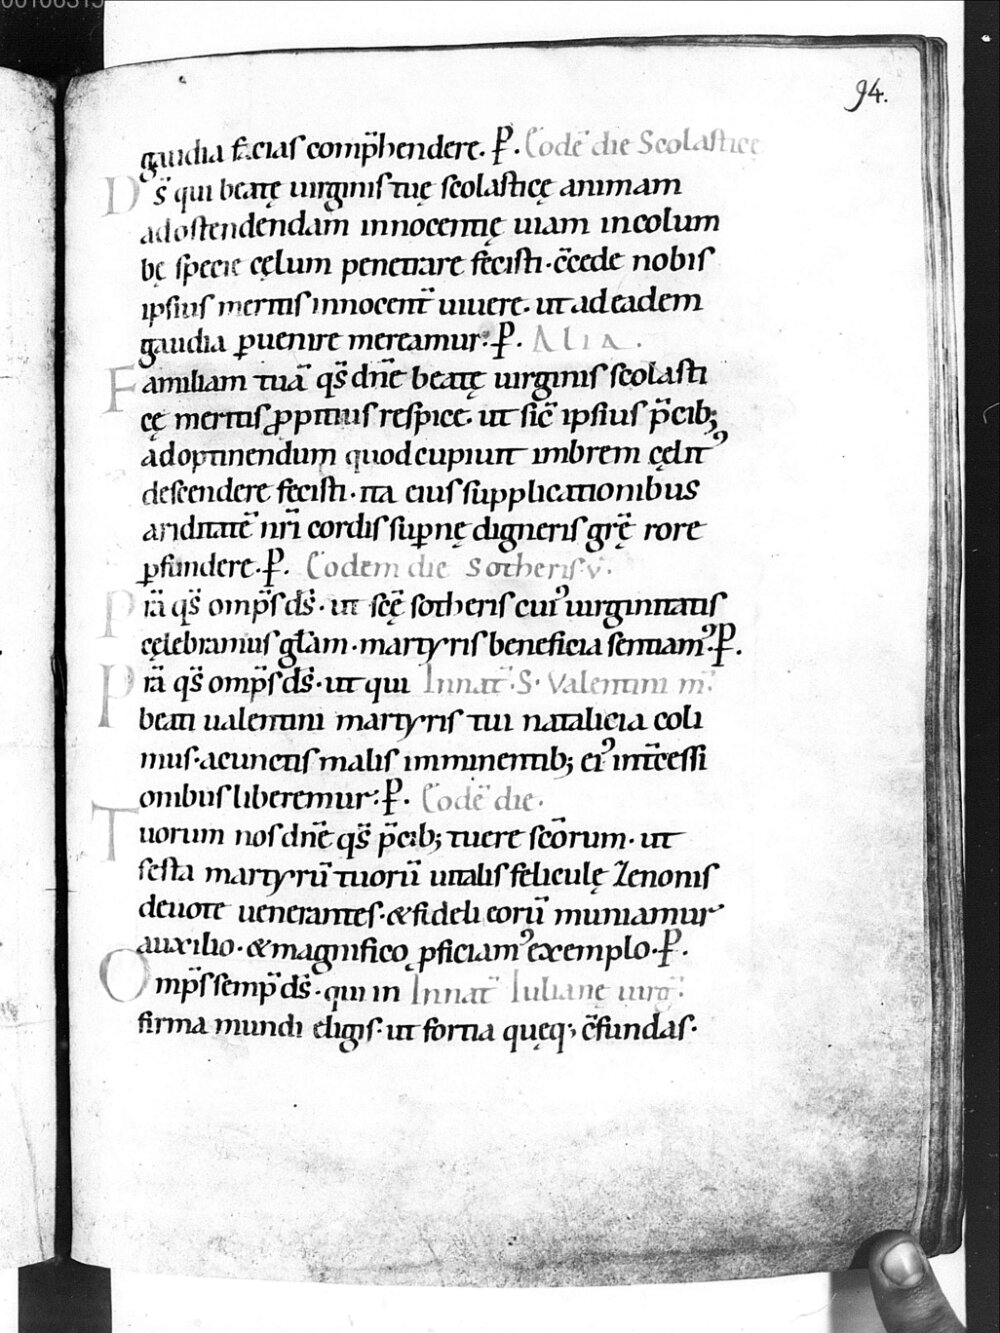 94.
gaudia facias comp̄hendere. P̱. Eodē die Scolasticę
Ds̄ qui beatę uirginis tuę scolasticę animam
ad ostendendam innocentię uiam in colum
bę specie cęlum penetrare fecisti. c̄cede nobis
ipsius meritis innocent̄ uiuere. ut ad eadem
gaudia ꝑuenire mereamur. P̱. Alia.
Familiam tuā qs̄ dn̄e beatę uirginis scolasti
cę meritis ꝓpitius respice. ut sic̄ ipsius p̄cib;
ad optinendum quod cupiuit imbrem cęlit᾽
descendere fecisti. ita eius supplicationibus
ariditatē nr̄i cordis suꝑnę digneris grę̄ rore
ꝑfundere. P̱. Eodem die Sotheris v̄.
Pr̄a qs̄ omp̄s ds̄. ut scę̄ sotheris cui᾽ uirginitatis
cęlebramus gl̄am. martyris beneficia sentiam᾽. P̱.
Pr̄a qs̄ omp̄s ds̄. ut qui In nat̄. S. Valentini m̄.
beati ualentini martyris tui natalicia coli
mus. a cunctis malis imminentib; ei᾽ int̄cessi
onibus liberemur. P̱. Eodē die.
Tuorum nos dn̄e qs̄ p̄cib; tuere sc̄orum. ut
festa martyrū tuorū uitalis feliculę Zenonis
deuote uenerantes. & fideli eorū muniamur
auxilio. & magnifico ꝓficiam᾽ exemplo. P̱.
Omp̄s semp̄ ds̄. qui in In nat̄ Iulianę uirḡ.
firma mundi eligis. ut fortia quęq; c̄fundas.